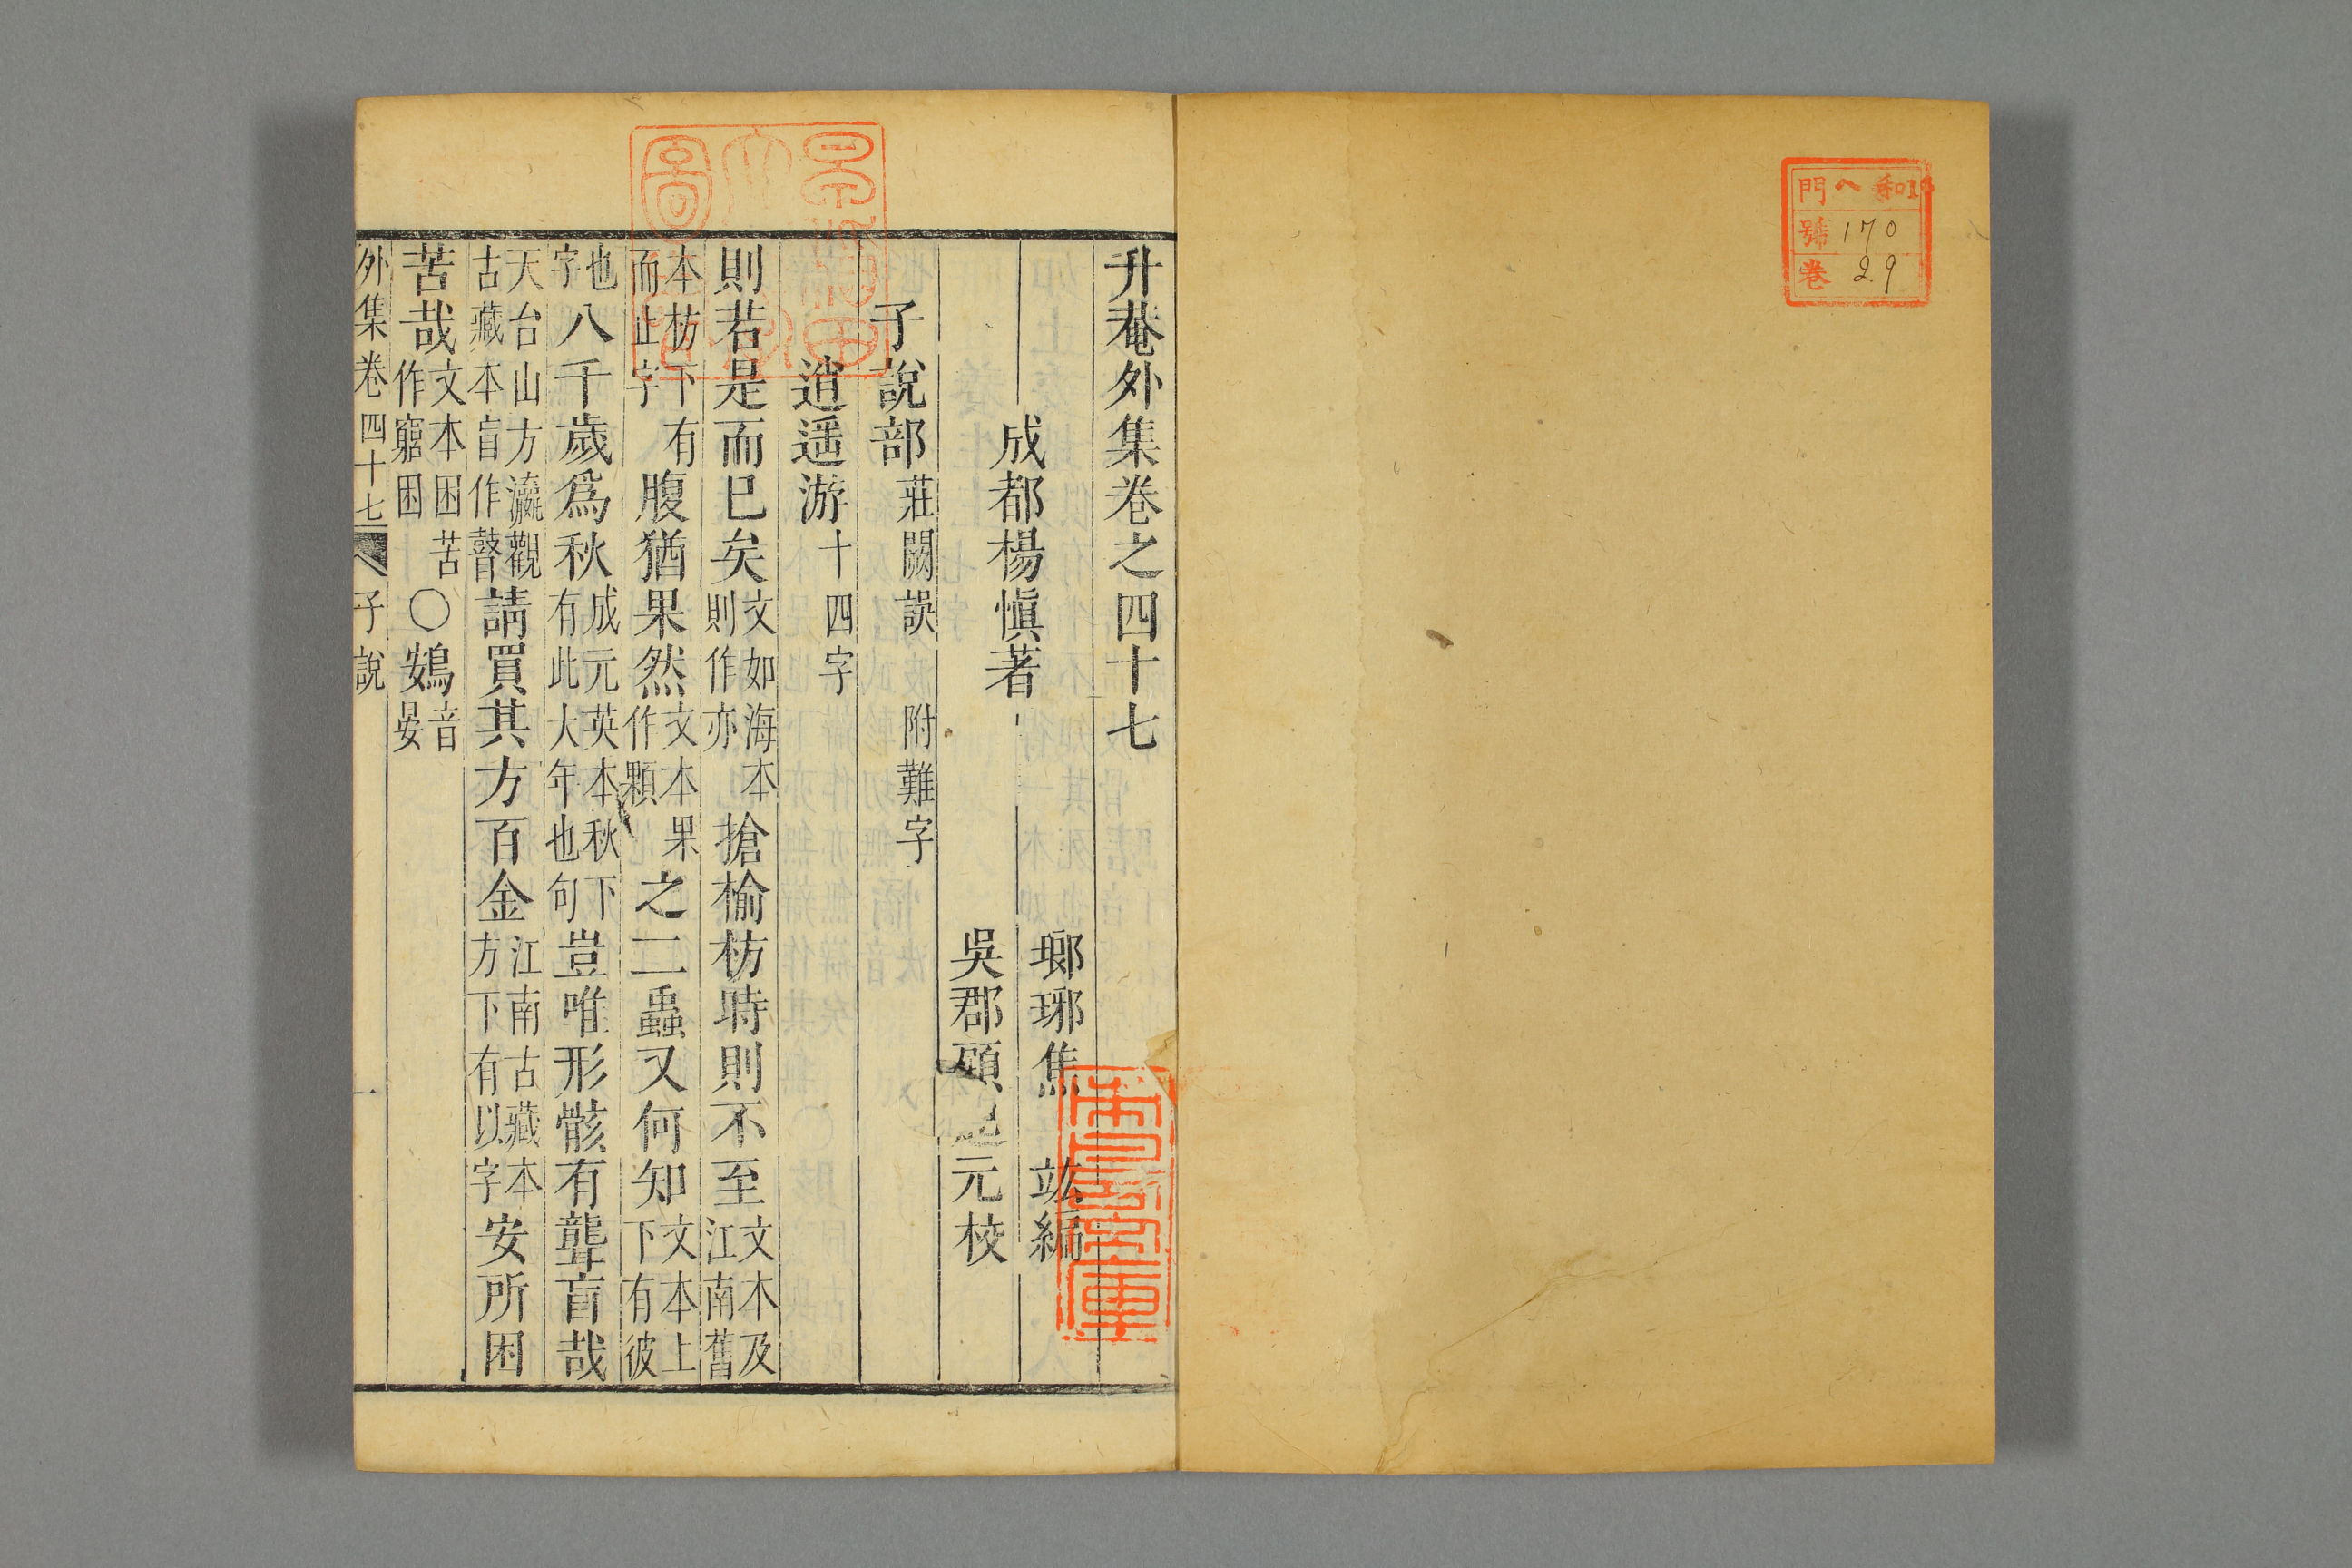 門 へ 和16
號 170
卷 29
升菴外集卷之四十七
成都楊愼著
瑯琊焦 竑編
吳郡顧 元校
子說部 莊闕誤 附難字
逍遥游 十四字
則若是而已矣 文如海本則作亦 搶榆枋時則不至 文本及江南舊
本枋下有而止字 腹猶果然 文本果作顆 之二蟲又何知 文本上下有彼
也字 八千歲爲秋 成元英本秋下有此大年也句 豈唯形骸有聾盲哉
天台山方瀛觀古藏本盲作瞽 請買其方百金 江南古藏本方下有以字 安所困
苦哉 文本困苦作窮困 〇鴳 音晏
外集卷四十七 子說 一